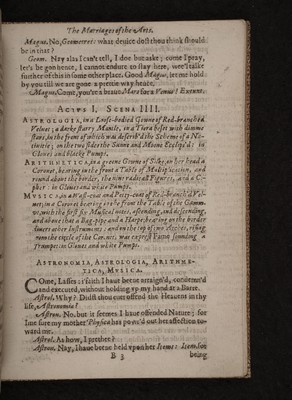 The Marriages of the Arts.
Magus. No, Geometres: what device dost thou think should
be in that?
Geom. Nay alas I can't tell, I doe but aske; come I pray,
let's be gon hence, I cannot endure to stay here, wee'l talke
further of this in some other place. Good Magus, let me hold
by you till we are gone a prettie way hence.
Magus. Come, you're a brave Mars for a Venus! Exeunt.
ACTUS I, SCENA IIII.
ASTROLOGIA, in a loose-bodied Gowne of Red-branched
Velvet; a darke starry Mantle, on a Tiara beset with dimme
stars, in the front of which was describ'd the Scheme of a Na-
tivitie; in the two sides the Sunne and Moone Eclips'd: in
Gloves and blacke Pumps.
ARITHMETICA, in a greene Gowne of Silke, on her head a
Coronet, bearing in the front a Table of Multiplication, and
round about the border, the nine radicall Figures, and a Cy-
pher: in Gloves and white Pumps.
MUSICA, in a Wast-coat and Petty-coat of
in a Coronet bearing in the front the Table of the Gamm-
ut, with the first six Musicall notes, ascending, and descending,
and above that a Bag-pipe and a Harpe; bearing on the border
divers other Instruments; and on the top of two Arches, rising
from the circle of the Coronet, was exprest Fame sounding a
Trumpet: in Gloves and white Pumps.
ASTRONOMIA, ASTROLOGIA, ARITHME-
TICA, MUSICA.
COme, Lasses: i faith I have beene arraign'd, condemn'd
and executed, without holding up my hand at a Barre.
Astrol. Why? Didst thou ever offend the Heavens in thy
life, Astronomia?
Astron. No: but it seemes I have offended Nature; for
I me sure my mother Physica has pow'rd out her affection to-
ward me.
Astrol. As how, I prethee?
Astron. Nay, I have beene held upon her Items: Item for
B 3 being